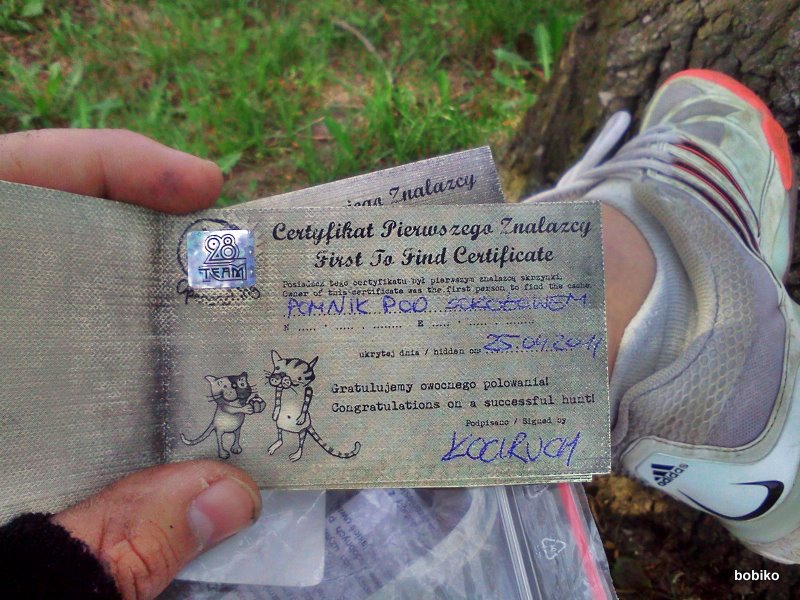 ego Znalazcy
Certyfikat Pierwszego Znalazcy
First To Find Certificate
28
TEAM
Posiadacz tego certyfikatu był pierwszym znalazcą skrzynki.
Owner of this certificate was the first person to find the cache.
POMNIK POD SOKOŁOWEM
N ..... ° ..... . ........ E ..... ° ..... . ........
ukrytej dnia / hidden on: 25.04.2011
Gratulujemy owocnego polowania!
Congratulations on a successful hunt!
Podpisano / Signed by
KOCIRUCH
adidas
bobiko